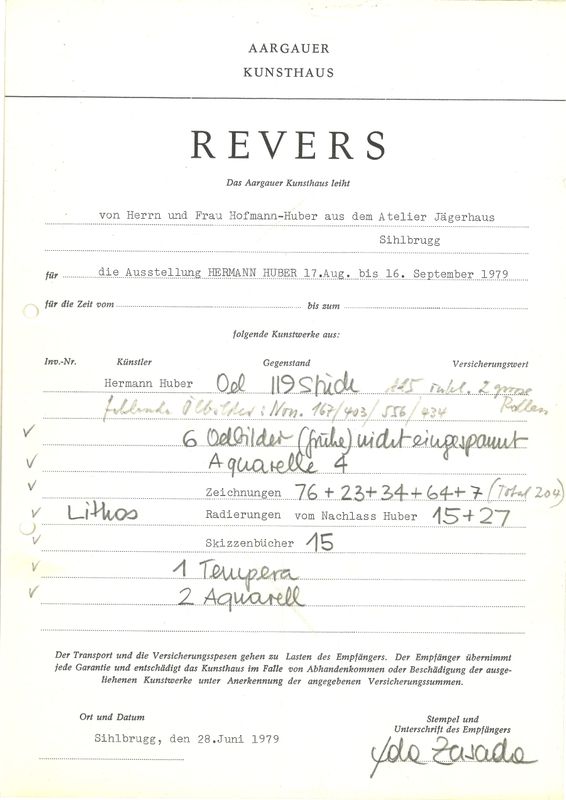 AARGAUER
KUNSTHAUS
REVERS
Das Aargauer Kunsthaus leiht
von Herrn und Frau Hofmann-Huber aus dem Atelier Jägerhaus
Sihlbrugg
für die Ausstellung HERMANN HUBER 17.Aug. bis 16. September 1979
für die Zeit vom bis zum
folgende Kunstwerke aus:
Inv.-Nr. Künstler Gegenstand Versicherungswert
Hermann Huber Oel 119 Stück 115 inkl. 2 grosse Rollen
fehlende Ölbilder: Nrn. 167/403/556/434
6 Oelbilder (frühe) nicht eingespannt
Aquarelle 4
Zeichnungen 76 + 23 + 34 + 64 + 7 (Total 204)
Lithos Radierungen vom Nachlass Huber 15 + 27
Skizzenbücher 15
1 Tempera
2 Aquarell
Der Transport und die Versicherungsspesen gehen zu Lasten des Empfängers. Der Empfänger übernimmt
jede Garantie und entschädigt das Kunsthaus im Falle von Abhandenkommen oder Beschädigung der ausge-
liehenen Kunstwerke unter Anerkennung der angegebenen Versicherungssummen.
Ort und Datum
Stempel und
Unterschrift des Empfängers
Sihlbrugg, den 28.Juni 1979
Yda Zasada